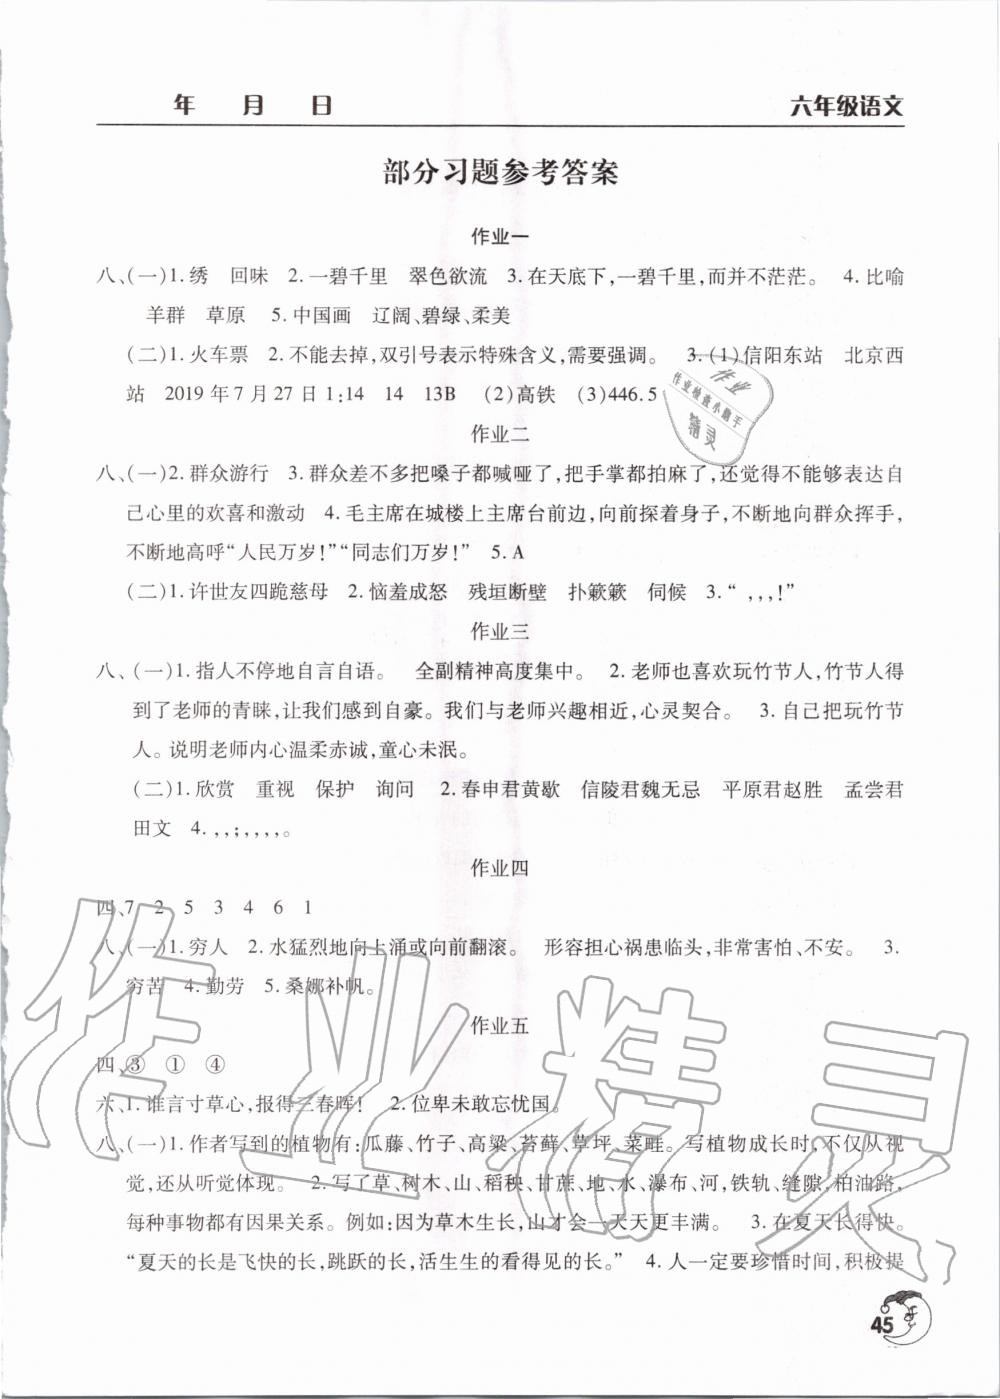 年 月 日 六年级语文
部分习题参考答案
作业一
八、(一)1.绣 回味 2.一碧千里 翠色欲流 3.在天底下,一碧千里,而并不茫茫。 4.比喻
羊群 草原 5.中国画 辽阔、碧绿、柔美
(二)1.火车票 2.不能去掉,双引号表示特殊含义,需要强调。 3.(1)信阳东站 北京西
站 2019年7月27日1:14 14 13B (2)高铁 (3)446.5
作业二
八、(一)2.群众游行 3.群众差不多把嗓子都喊哑了,把手掌都拍麻了,还觉得不能够表达自
己心里的欢喜和激动 4.毛主席在城楼上主席台前边,向前探着身子,不断地向群众挥手,
不断地高呼“人民万岁!”“同志们万岁!” 5.A
(二)1.许世友四跪慈母 2.恼羞成怒 残垣断壁 扑簌簌 伺候 3.“ ,,,!”
作业三
八、(一)1.指人不停地自言自语。 全副精神高度集中。 2.老师也喜欢玩竹节人,竹节人得
到了老师的青睐,让我们感到自豪。我们与老师兴趣相近,心灵契合。 3.自己把玩竹节
人。说明老师内心温柔赤诚,童心未泯。
(二)1.欣赏 重视 保护 询问 2.春申君黄歇 信陵君魏无忌 平原君赵胜 孟尝君
田文 4.,,;,,,,。
作业四
四、7 2 5 3 4 6 1
八、(一)1.穷人 2.水猛烈地向上涌或向前翻滚。 形容担心祸患临头,非常害怕、不安。 3.
穷苦 4.勤劳 5.桑娜补帆。
作业五
四、③ ① ④
六、1.谁言寸草心,报得三春晖! 2.位卑未敢忘忧国。
八、(一)1.作者写到的植物有:瓜藤、竹子、高粱、苔藓、草坪、菜畦。写植物成长时,不仅从视
觉,还从听觉体现。 2.写了草、树木、山、稻秧、甘蔗、地、水、瀑布、河,铁轨、缝隙,柏油路,
每种事物都有因果关系。例如:因为草木生长,山才会一天天更丰满。 3.在夏天长得快。
“夏天的长是飞快的长,跳跃的长,活生生的看得见的长。” 4.人一定要珍惜时间,积极提
45
作业
作业检查小助手
精灵
作业精灵